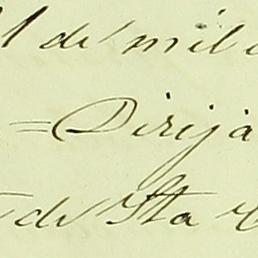 de mil
= Dirija
de Sta